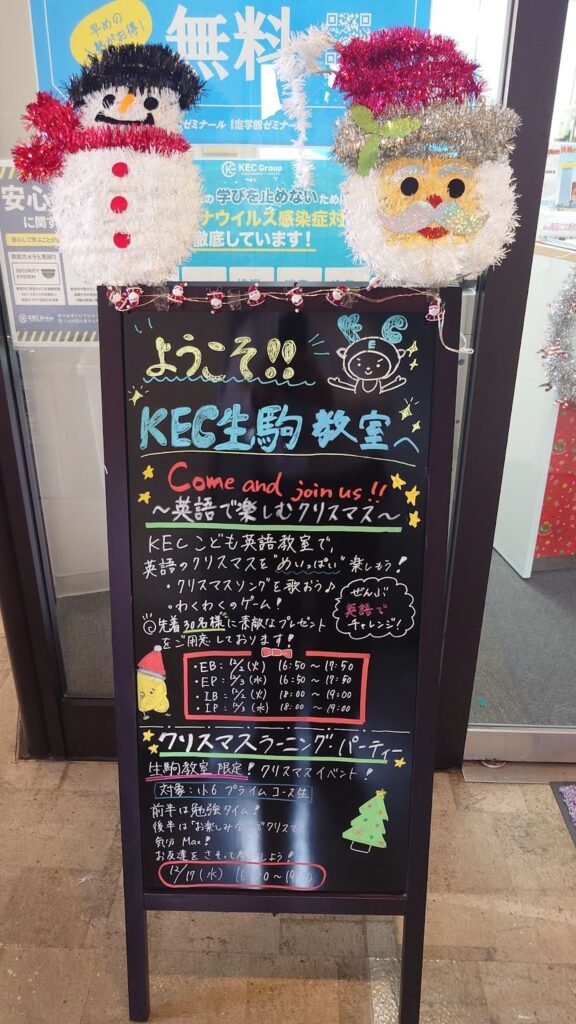 早めの
無料
ゼミナール
志学館ゼミナール
KEC Group
の学びを止めないため
ナウイルス感染症対
徹底しています！
安心
に関す
防犯カメラと見回り
SECURITY
SYSTEM
KEC Group
K E C
ようこそ!!
KEC生駒教室へ
Come and join us!!
～英語で楽しむクリスマス～
KECこども英語教室で、
英語のクリスマスを"めいっぱい"楽しもう！
・クリスマスソングを歌おう♪
・わくわくのゲーム！
ぜんぶ
英語で
チャレンジ！
◎先着30名様に素敵なプレゼント
をご用意しております！
・EB: 12/2(火) 16:50～17:50
・EP: 12/3(水) 16:50～17:50
・IB: 12/2(火) 18:00～19:00
・IP: 12/3(水) 18:00～19:00
クリスマスラーニング・パーティー
生駒教室限定！クリスマスイベント！
対象：小6 プライムコース生
前半は勉強タイム！
後半は「お楽しみ会」でクリスマス
気分Max!
お友達をさそって
しよう！
12/17(水)